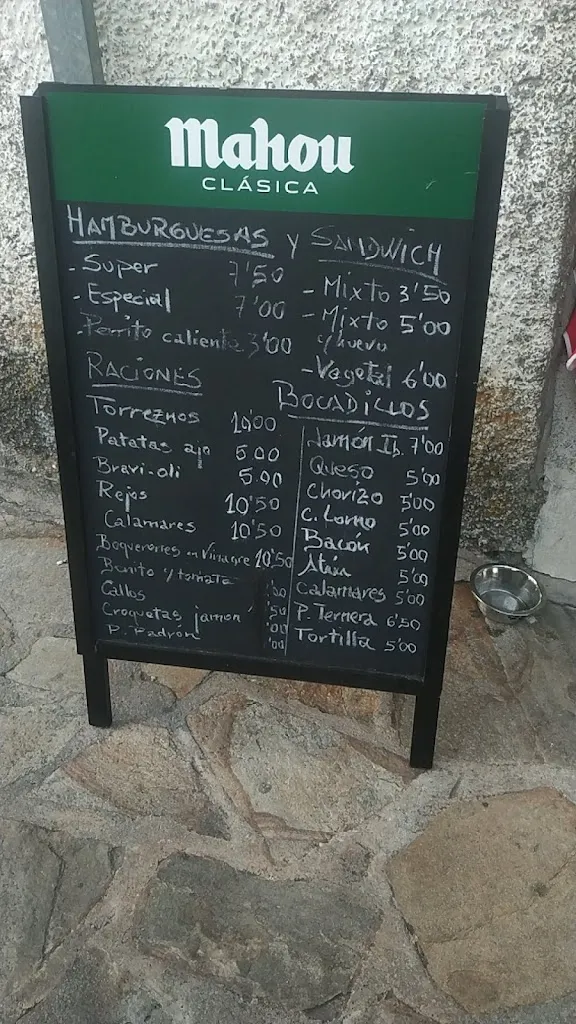 Mahou
CLÁSICA
HAMBURGUESAS y SANDWICH
- Super 7'50
- Especial 7'00
- Perrito caliente 3'00
- Mixto 3'50
- Mixto 5'00
c/huevo
- Vegetal 6'00
RACIONES
Torreznos 10'00
Patatas ajo 5.00
Bravi-oli 5.00
Rejos 10'50
Calamares 10'50
Boquerones en Vinagre 10'50
Bonito y tomate
Callos
Croquetas jamon
P. Padrón
BOCADILLOS
Jamon Ib. 7'00
Queso 5'00
Chorizo 5'00
C. Lomo 5'00
Bacón 5'00
Atún 5'00
Calamares 5'00
P. Ternera 6'50
Tortilla 5'00